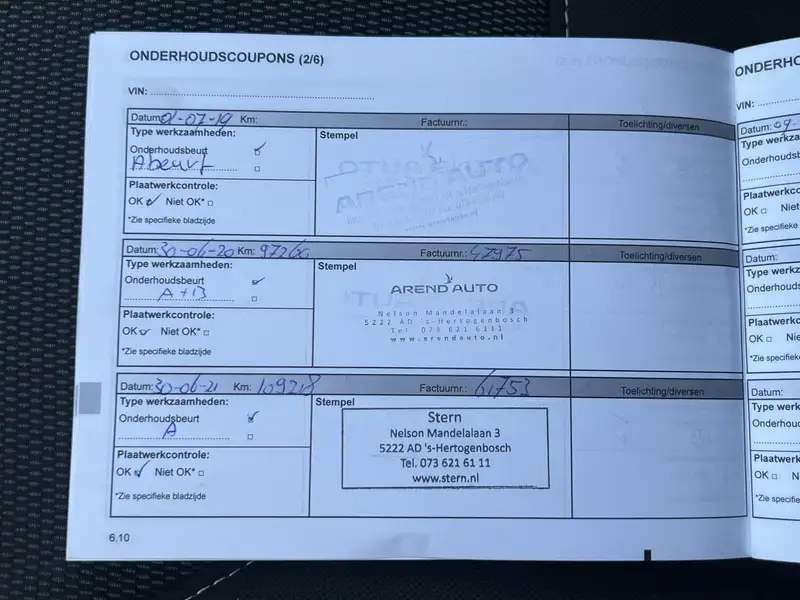 ONDERHOUDSCOUPONS (2/6)
VIN:
Datum: 01-07-19 Km: Factuurnr.: Toelichting/diversen
Type werkzaamheden: Stempel
Onderhoudsbeurt
A beurt
Plaatwerkcontrole:
OK Niet OK*
*Zie specifieke bladzijde
AREND AUTO
Datum: 30-06-20 Km: 97260 Factuurnr.: 47975 Toelichting/diversen
Type werkzaamheden: Stempel
Onderhoudsbeurt
A+B
Plaatwerkcontrole:
OK Niet OK*
*Zie specifieke bladzijde
AREND AUTO
Nelson Mandelalaan 3
5222 AD 's-Hertogenbosch
Tel. 073 621 6111
www.arendauto.nl
Datum: 30-06-21 Km: 109218 Factuurnr.: 61753 Toelichting/diversen
Type werkzaamheden: Stempel
Onderhoudsbeurt
A
Plaatwerkcontrole:
OK Niet OK*
*Zie specifieke bladzijde
Stern
Nelson Mandelalaan 3
5222 AD 's-Hertogenbosch
Tel. 073 621 61 11
www.stern.nl
6.10
ONDERHO
VIN:
Datum: 09-
Type werk
Onderhouds
Plaatwerkc
OK Niet
*Zie specifieke
Datum:
Type werkz
Onderhouds
Plaatwerkc
OK Nie
*Zie specifieke
Datum:
Type werk
Onderhoud
Plaatwerk
OK N
*Zie specifie